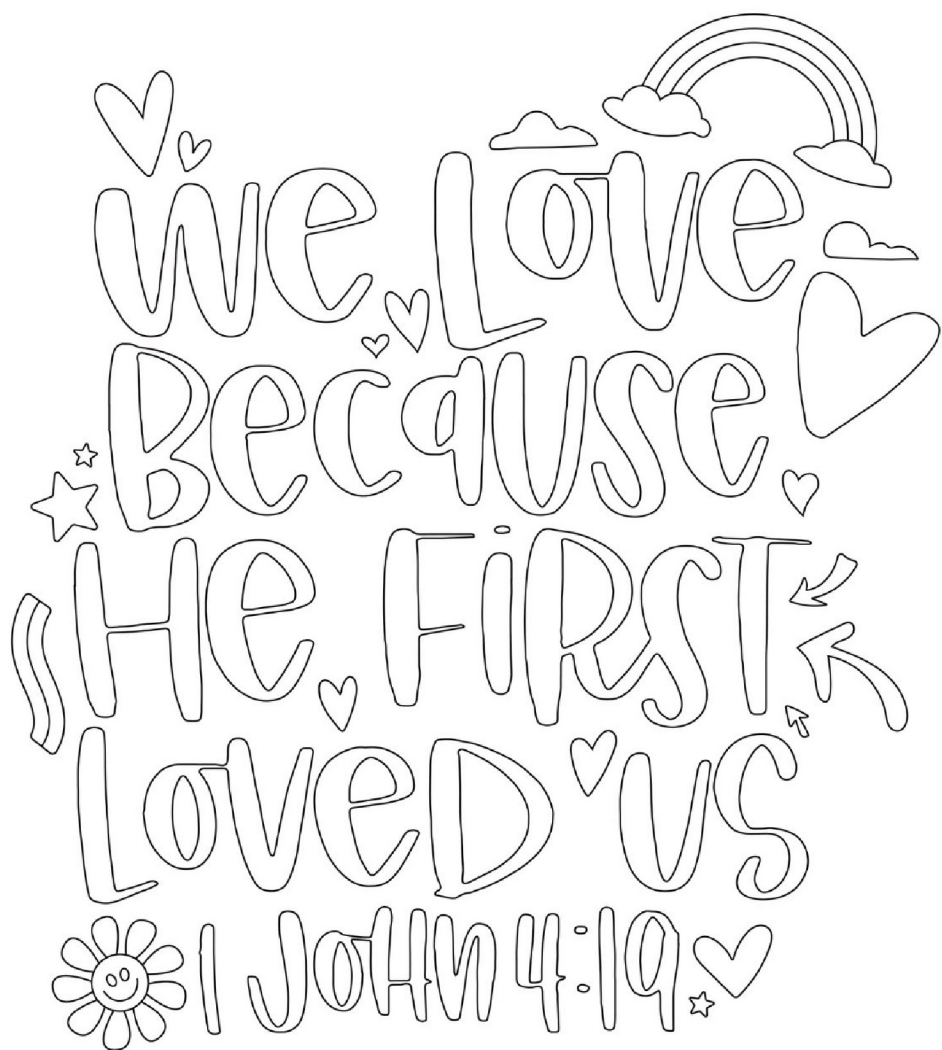 We Love
Because
He First
Loved us
1 John 4:19